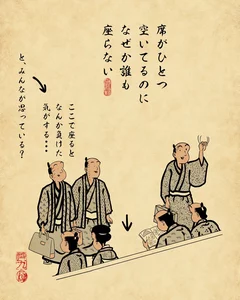 席がひとつ
空いてるのに
なぜか誰も
座らない
ここで座ると
なんか負けた
気がする・・・
と、みんなが思っている？